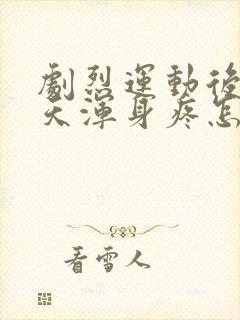 劇烈運動後
天渾身疼怎
看雪人